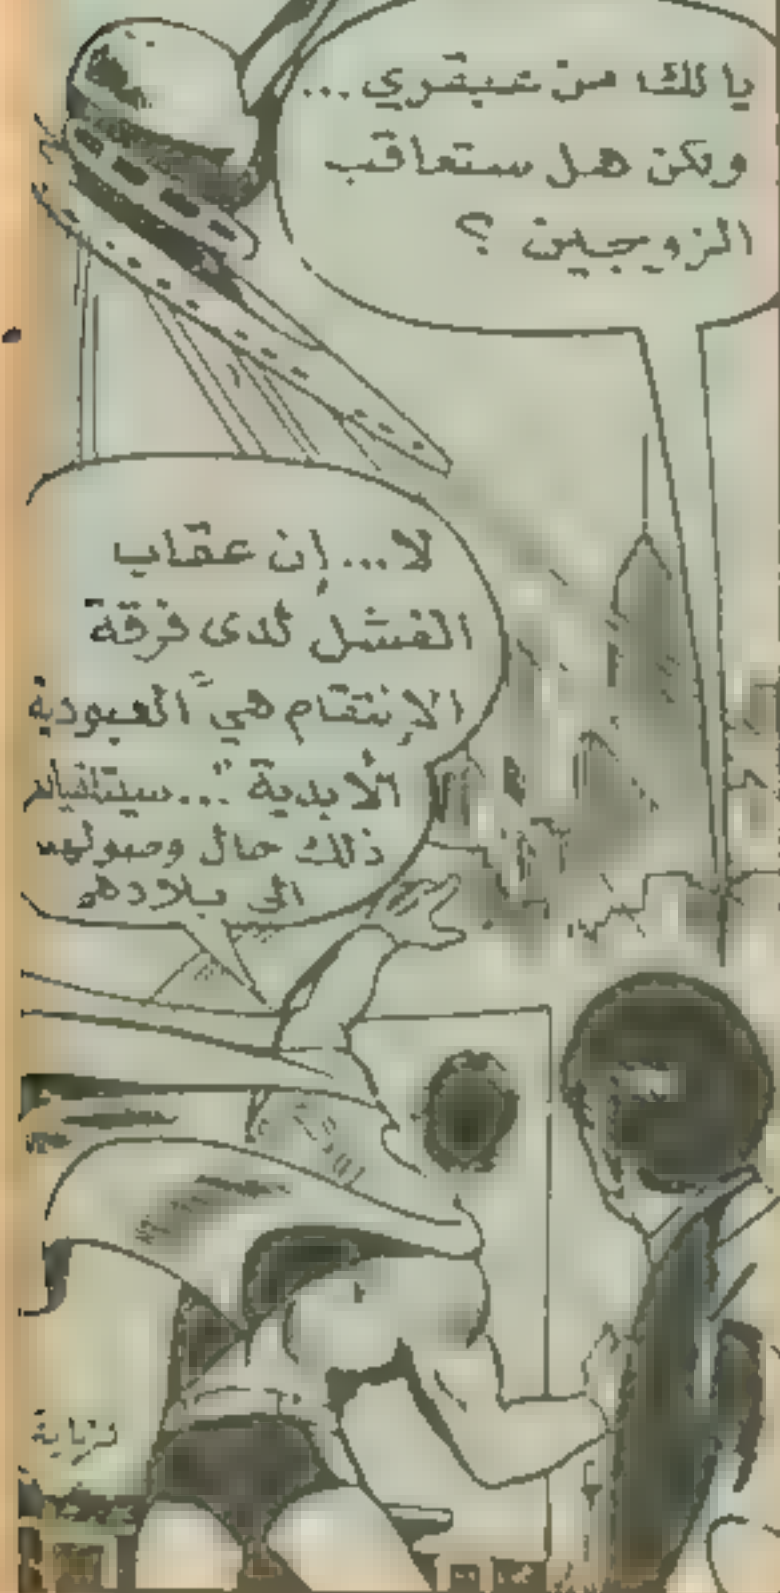 يا لك من عبقري...
ولكن هل ستعاقب
الزوجين ؟
لا...إن عقاب
الفشل لدى فرقة
الإنتقام هي "العبودية
الأبدية"...سيتلقيان
ذلك حال وصولهم
الى بلادهم